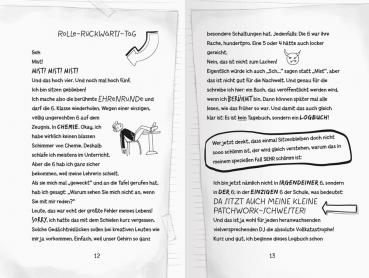 ROLLE-RÜCKWÄRTS-TAG
Seh
Mist!
MIST! MIST! MIST!
Und das hoch vier. Und noch mal hoch fünf.
Ich bin sitzen geblieben!
Ich mache also die berühmte EHRENRUNDE und
darf die 6. Klasse wiederholen. Wegen einer einzigen,
völlig ungerechten 6 auf dem
Zeugnis. In CHEMIE. Okay, ich
habe wirklich keinen blassen
Schimmer von Chemie. Deshalb
schlafe ich meistens im Unterricht.
Aber die 6 hab ich ganz sicher
bekommen, weil meine Lehrerin schielt.
Als sie mich mal „geweckt“ und an die Tafel gerufen hat,
hab ich gesagt: „Warum sehen Sie mich nicht an, wenn
Sie mit mir reden?“
Leute, das war echt der größte Fehler meines Lebens!
SORRY, ich hatte das mit dem Schielen kurz vergessen.
Solche Gedächtnislücken sollen bei kreativen Leuten wie
mir ja vorkommen. Einfach, weil unser Gehirn so ganz
12
besondere Schaltungen hat. Jedenfalls: Die 6 war ihre
Rache, hundertpro. Eine 5 oder 4 hätte auch locker
gereicht.
Nein, das ist nicht zum Lachen!
Eigentlich würde ich auch „Sch...“ sagen statt „Mist“, aber
das ist nicht gut für die Nachwelt. Und genau für die
schreibe ich hier: ein Buch, das veröffentlicht werden wird,
wenn ich BERÜHMT bin. Dann können später mal alle
lesen, wie das früher so war. Und damit das auch gleich
klar ist: Es ist kein Tagebuch, sondern ein LOGBUCH!
Wer jetzt denkt, dass einmal Sitzenbleiben doch nicht
sooo schlimm ist, der wird gleich verstehen, warum das in
meinem speziellen Fall SEHR schlimm ist:
Ich bin jetzt nämlich nicht in IRGENDEINER 6, sondern
in DER 6; in der EINZIGEN 6 der Schule, was bedeutet:
DA SITZT AUCH MEINE KLEINE
PATCHWORK-SCHWESTER!
Und das ist ja wohl für jeden heranwachsenden
vielversprechenden DJ die absolute Vollkatastrophe!
Kurz und gut, ich beginne dieses Logbuch schon
13